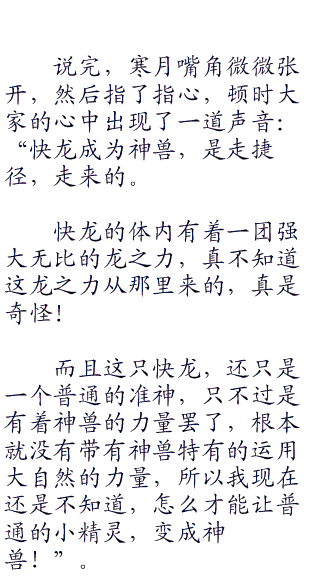 说完，寒月嘴角微微张
开，然后指了指心，顿时大
家的心中出现了一道声音：
“快龙成为神兽，是走捷
径，走来的。
快龙的体内有着一团强
大无比的龙之力，真不知道
这龙之力从那里来的，真是
奇怪！
而且这只快龙，还只是
一个普通的准神，只不过是
有着神兽的力量罢了，根本
就没有带有神兽特有的运用
大自然的力量，所以我现在
还是不知道，怎么才能让普
通的小精灵，变成神
兽！”。